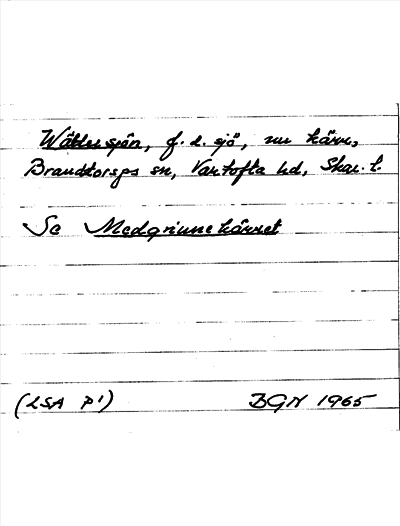 Wättersjön, f. d. sjö, nu kärr,
Brandstorps sn, Vartofta hd, Skar. l.
Se Medgrinnekärret
(LSA P1) BGN 1965